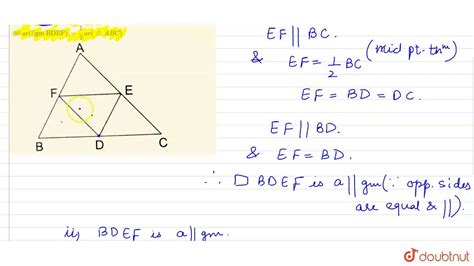 ar(||gm BDEF) = 1/2 ar(△ ABC)
A
F
E
B
D
C
EF || BC.
& EF = 1/2 BC (mid pt. thm)
EF = BD = DC.
EF || BD.
& EF = BD.
∴ □ BDEF is a ||gm (∵ opp. sides
are equal & ||).
ii) BDEF is a ||gm.
doubtnut